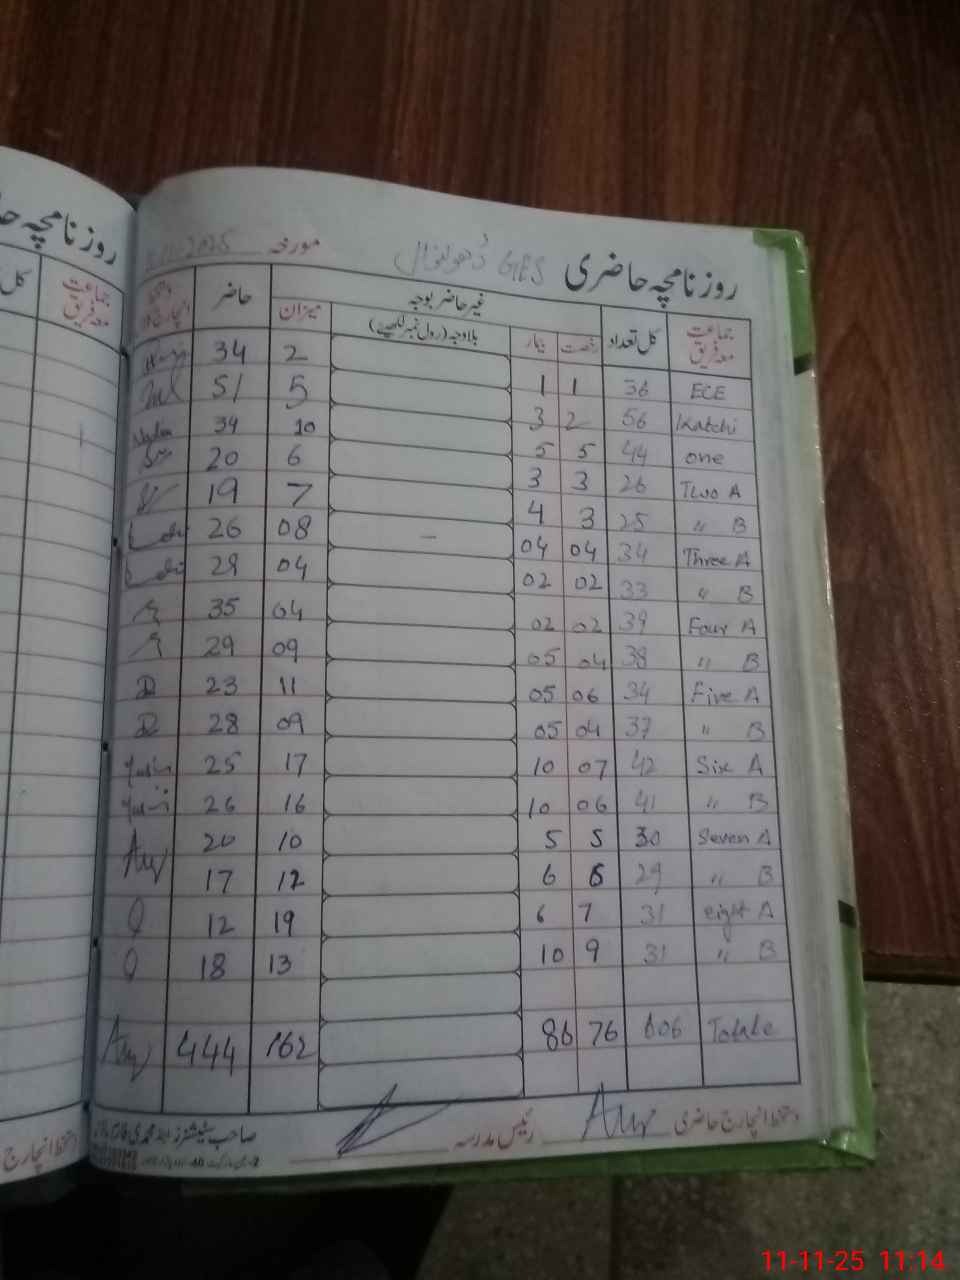 روزنامچہ حاضری GES دُھولنوال مورخہ 2025
جماعت معہ فریق کل تعداد غیر حاضر بوجہ میزان حاضر
رخصت بیمار بلاوجہ (رول نمبر لکھیے)
ECE 36 1 1 2 34
Katchi 56 2 3 5 51
one 44 5 5 10 34
Two A 26 3 3 6 20
" B 25 3 4 7 19
Three A 34 04 04 08 26
" B 33 02 02 04 29
Four A 39 02 02 04 35
" B 38 04 05 09 29
Five A 34 06 05 11 23
" B 37 04 05 09 28
Six A 42 07 10 17 25
" B 41 06 10 16 26
Seven A 30 5 5 10 20
" B 29 6 6 12 17
eight A 31 7 6 19 12
" B 31 9 10 13 18
Totale 606 76 86 162 444
دستخط انچارج حاضری رئیس مدرسہ
روزنامچہ
جماعت معہ فریق
کل
دستخط انچارج
11-11-25 11:14